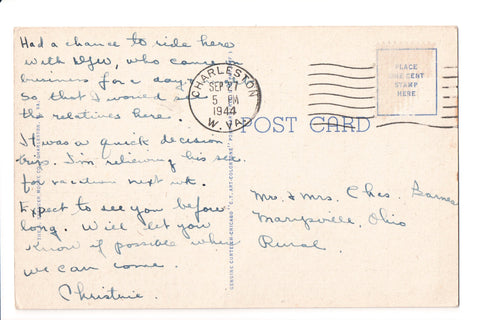 Had a chance to ride here
with DJW, who came on
business for a day. 
So that I would see
the relatives here.
It was a quick decision
trip. I'm relieving his sec.
for vacation next wk.
Expect to see you before
long. Will let you
know if possible when
we can come.
Christine.
CHARLESTON
SEP 27
5 PM
1944
W. VA.
PLACE
ONE CENT
STAMP
HERE
POST CARD
Mr. & Mrs. Chas. Barnes
Marysville, Ohio
Rural.
GENUINE CURTEICH-CHICAGO "C.T. ART-COLORTONE" POST